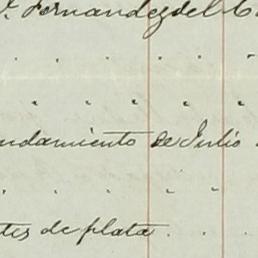 Fernandez del C
" " " "
ndamiento de Julio
" " "
tes de plata